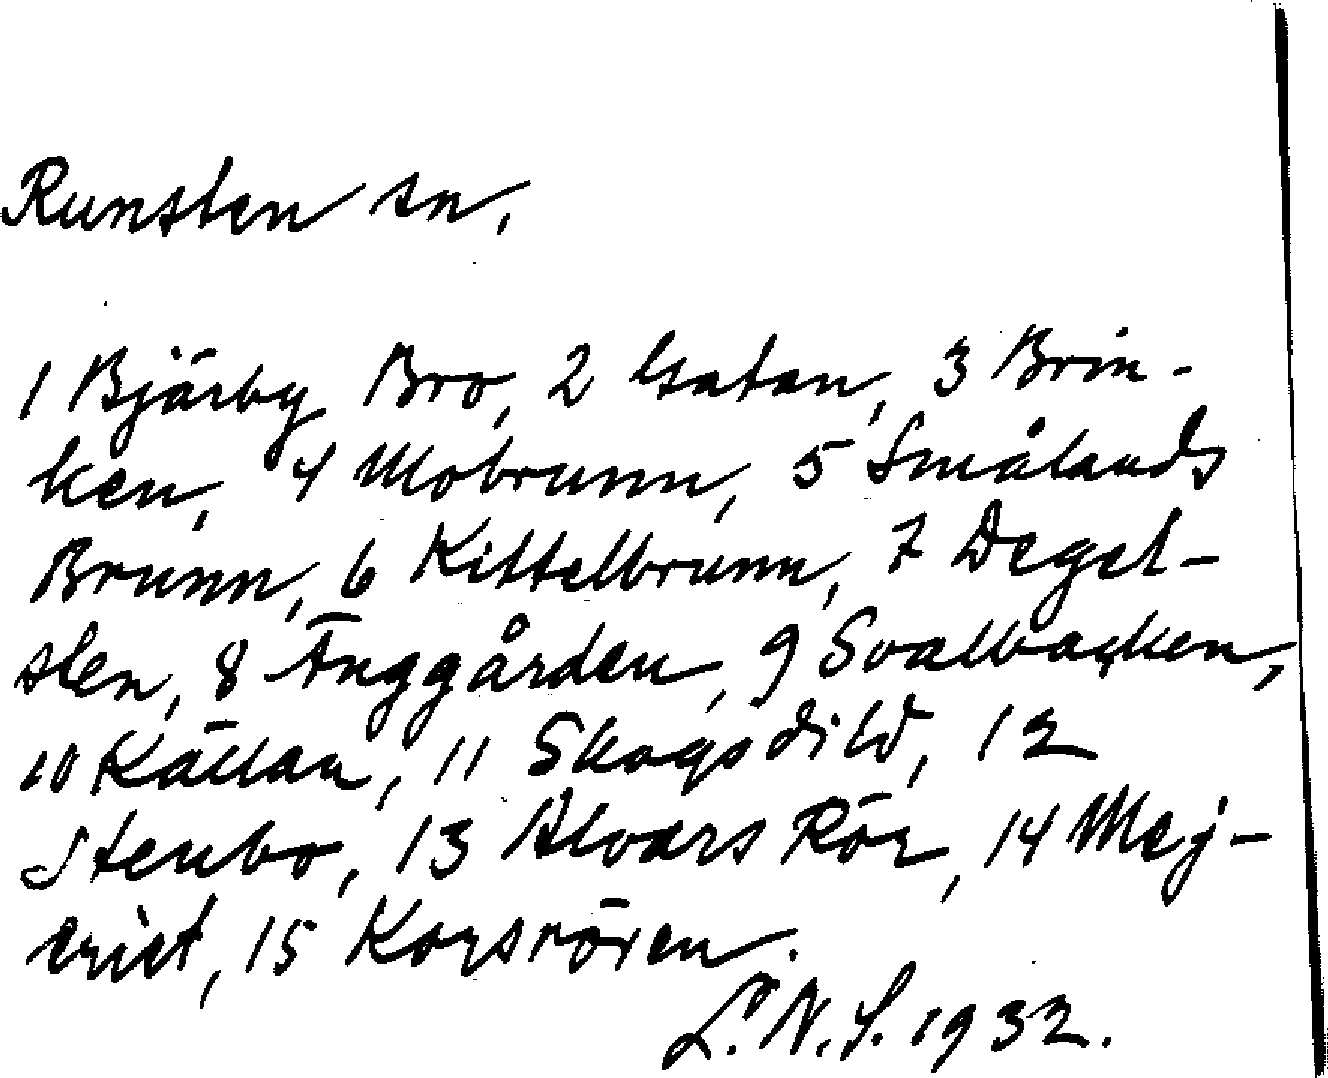 Runsten sn,
1 Bjärby Bro, 2 Gatan, 3 Brin-
ken, 4 Mobrunn, 5 Smålands
Brunn, 6 Kittelbrunn, 7 Degel-
sten, 8 Änggården, 9 Svalbacken,
10 Källan, 11 Skogsdild, 12
Stenbo, 13 Alvars Rör, 14 Mej-
eriet, 15 Korsrören.
L. N. S. 1932.